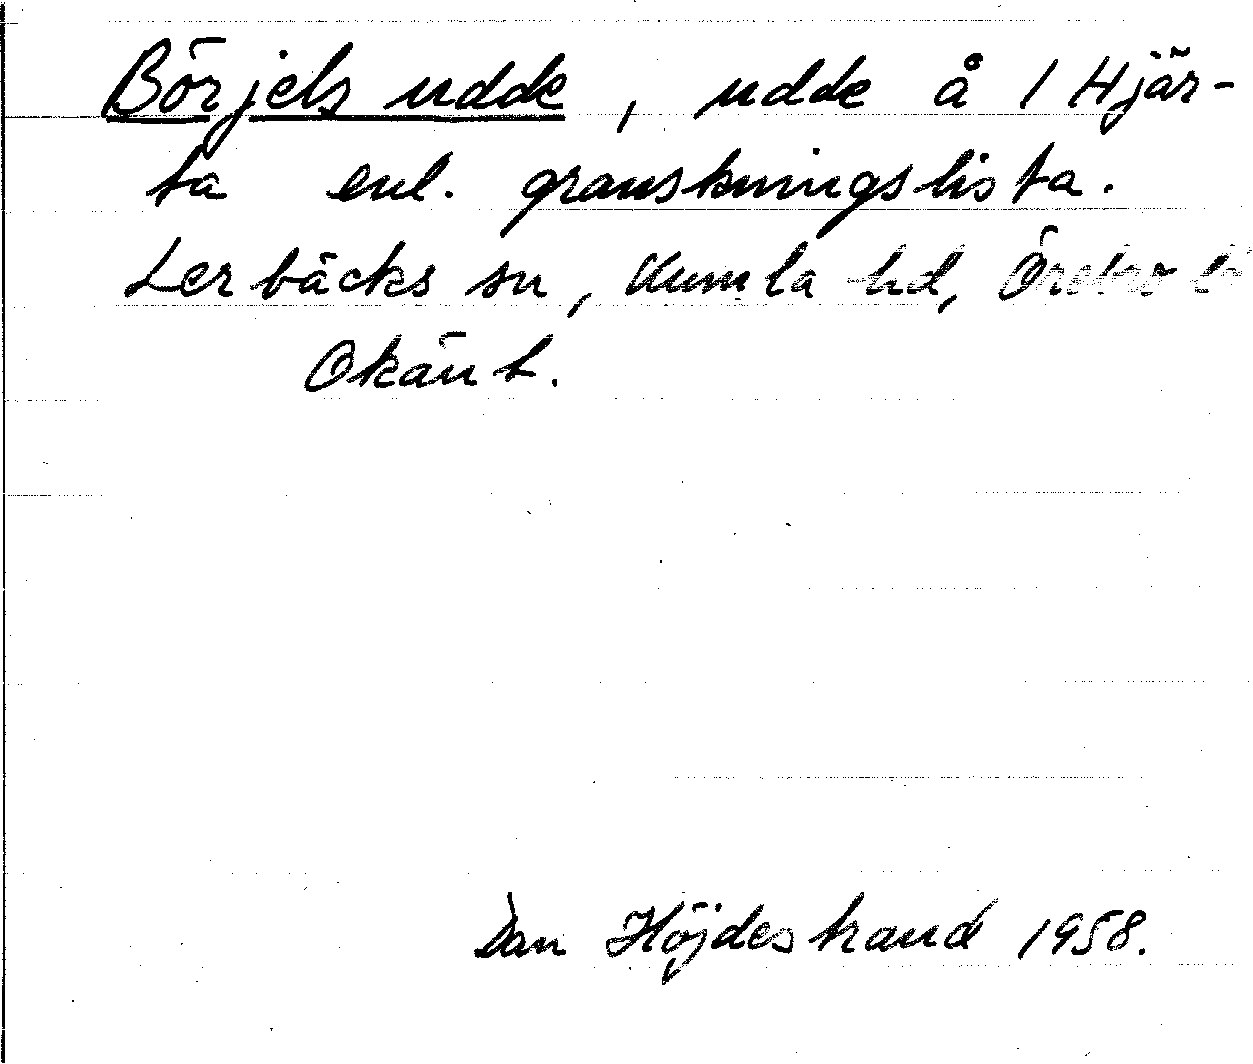 Börjels udde, udde å 1 Hjär-
ta enl. granskningslista.
Lerbäcks sn, Kumla hd, Örebro
Okänt.
Dan Höjdestrand 1958.